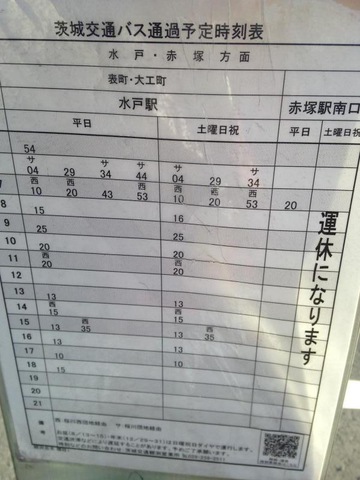 茨城交通バス通過予定時刻表
水戸・赤塚 方面
表町・大工町
水戸駅 赤塚駅南口
平日 土曜日祝 平日 土曜日祝
54
サ サ サ サ
04 29 34 44 04 29 34
7 西 西 西 西
10 20 43 53 10 20 53 20
8
15 16
9
25 25
10
20 20
11 西 西
20 20
12
13
13 13
14
15 15
15 西 西
13 35 13 35
16
13 13
17
10 10
18
15
19
20
21
運休になります
西-桜川西団地経由 サ-桜川団地経由